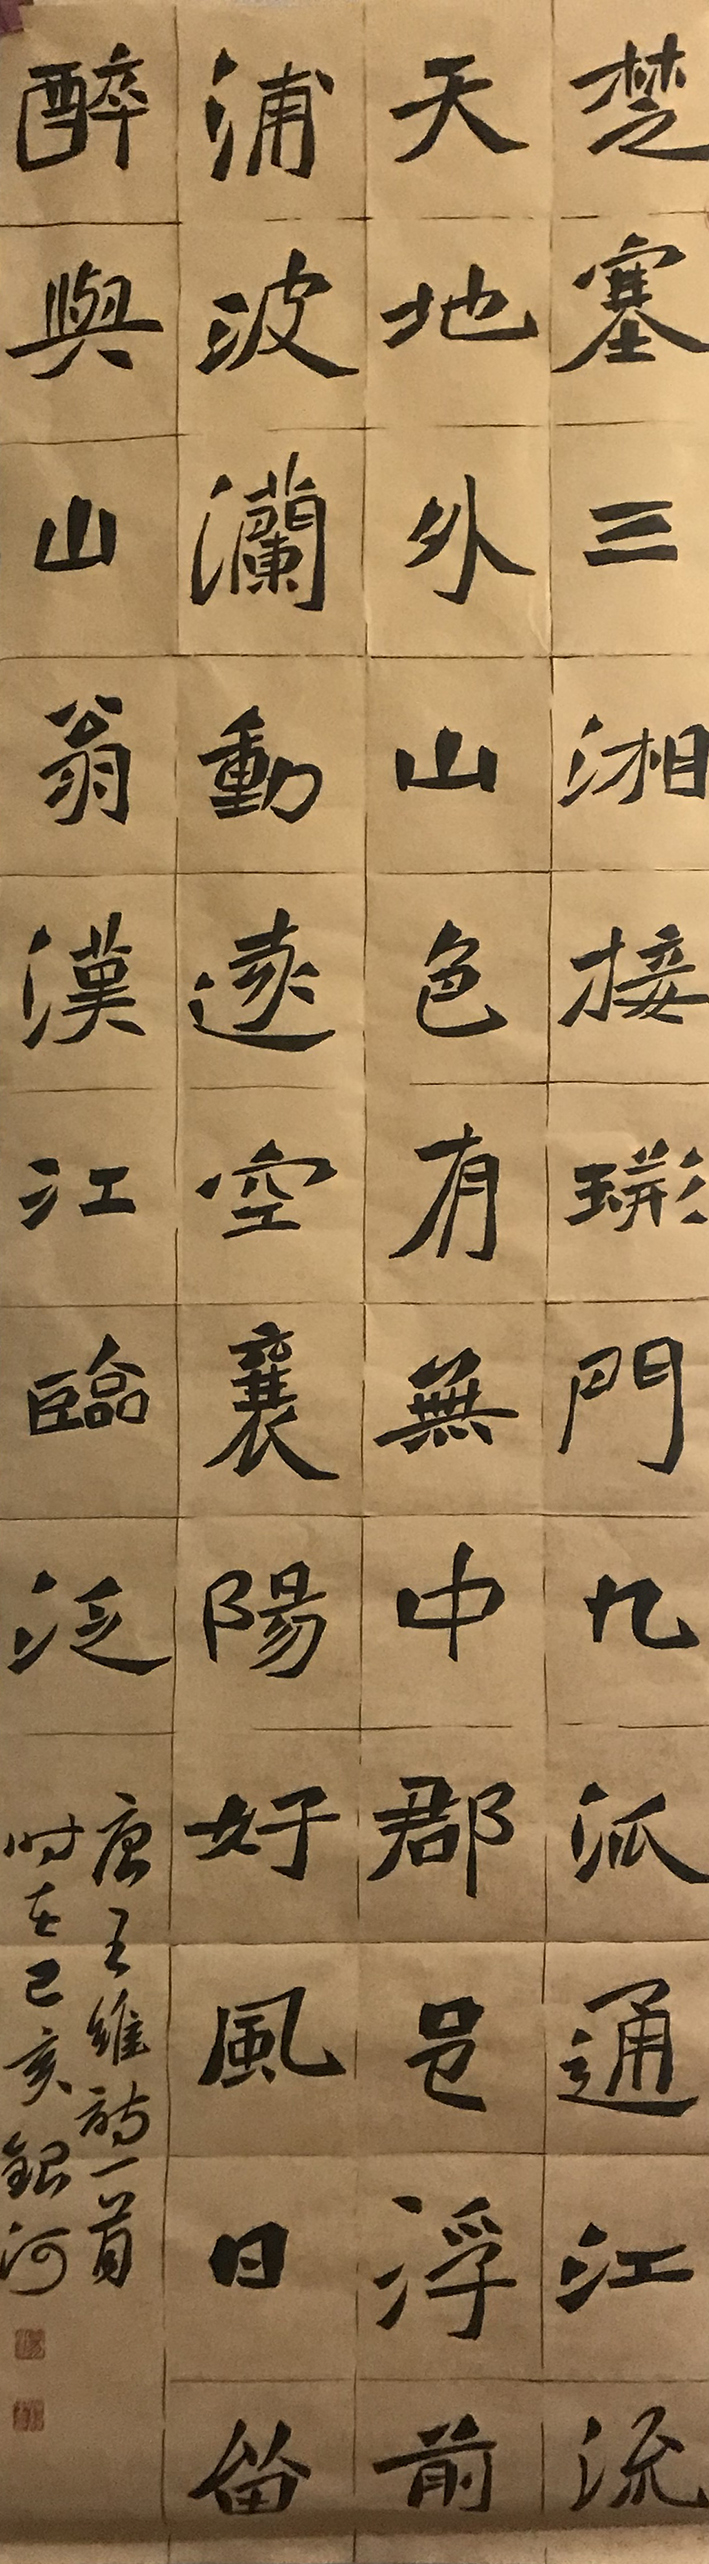 楚塞三湘接門九泒通江流
天地外山色有無中郡邑浮前
浦波瀾動遠空襄陽好風日留
醉與山翁漢江臨泛
唐王維詩一首
时在己亥銀河